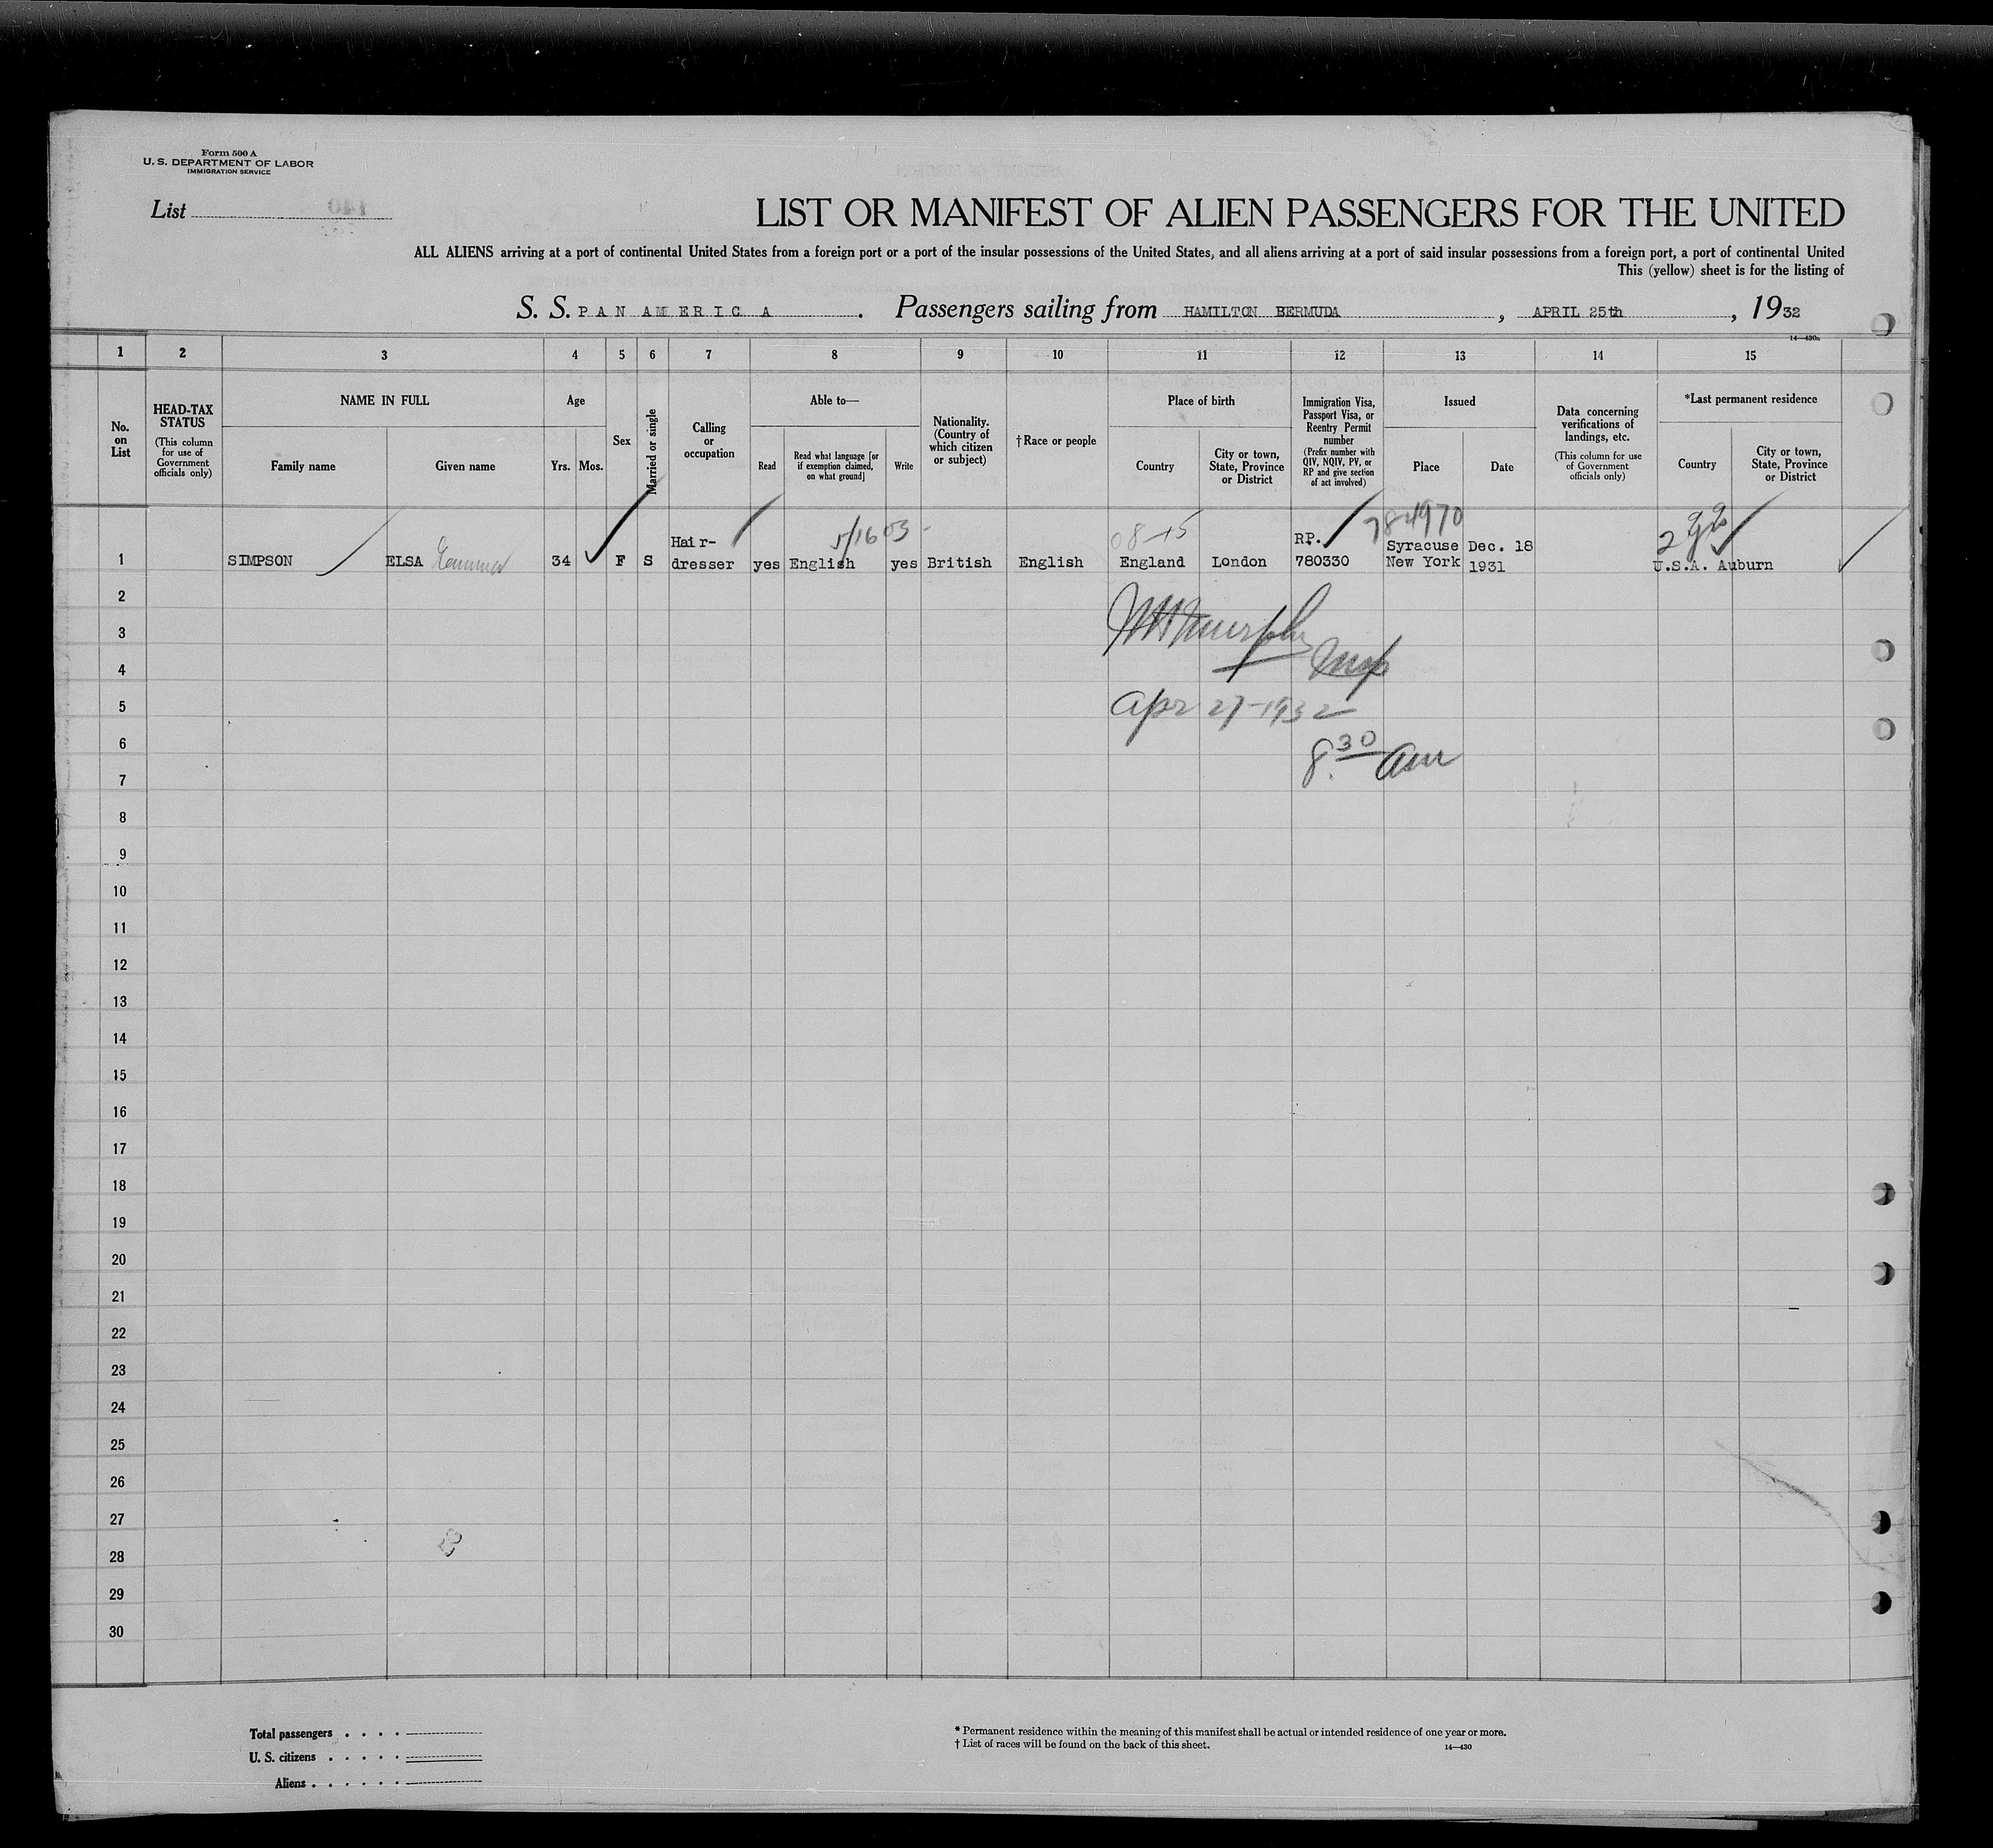 Form 500 A
U. S. DEPARTMENT OF LABOR
IMMIGRATION SERVICE
List
140
LIST OR MANIFEST OF ALIEN PASSENGERS FOR THE UNITED
ALL ALIENS arriving at a port of continental United States from a foreign port or a port of the insular possessions of the United States, and all aliens arriving at a port of said insular possessions from a foreign port, a port of continental United
This (yellow) sheet is for the listing of
S. S. PAN AMERICA . Passengers sailing from HAMILTON BERMUDA , APRIL 25th , 1932
14—430a
1 2 3 4 5 6 7 8 9 10 11 12 13 14 15
No. on List
HEAD-TAX STATUS
(This column for use of Government officials only)
NAME IN FULL
Family name
Given name
Age
Yrs.
Mos.
Sex
Married or single
Calling or occupation
Able to—
Read
Read what language [or if exemption claimed, on what ground]
Write
Nationality. (Country of which citizen or subject)
† Race or people
Place of birth
Country
City or town, State, Province or District
Immigration Visa, Passport Visa, or Reentry Permit number
(Prefix number with QIV, NQIV, PV, or RP and give section of act involved)
Issued
Place
Date
Data concerning verifications of landings, etc.
(This column for use of Government officials only)
*Last permanent residence
Country
City or town, State, Province or District
5/16 03 -
08-15
784970
1 SIMPSON ELSA 34 F S Hair-dresser yes English yes British English England London RP. 780330 Syracuse New York Dec. 18 1931 U.S.A. Auburn
2
3
Murphy
4
Insp
5
Apr 27-1932
6
8.30 am
7
8
9
10
11
12
13
14
15
16
17
18
19
20
21
22
23
24
25
26
27
28
29
30
Total passengers . . . .
U. S. citizens . . . . .
Aliens . . . . . .
* Permanent residence within the meaning of this manifest shall be actual or intended residence of one year or more.
† List of races will be found on the back of this sheet.
14—430